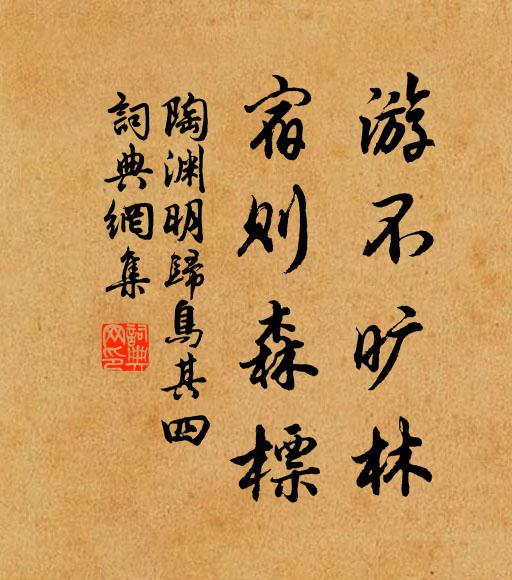 游不旷林
宿则森標
陶渊明歸鳥其四
詞典網集
詞典
网印